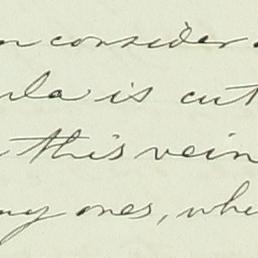 consider
is cut
this vein
ones, whe